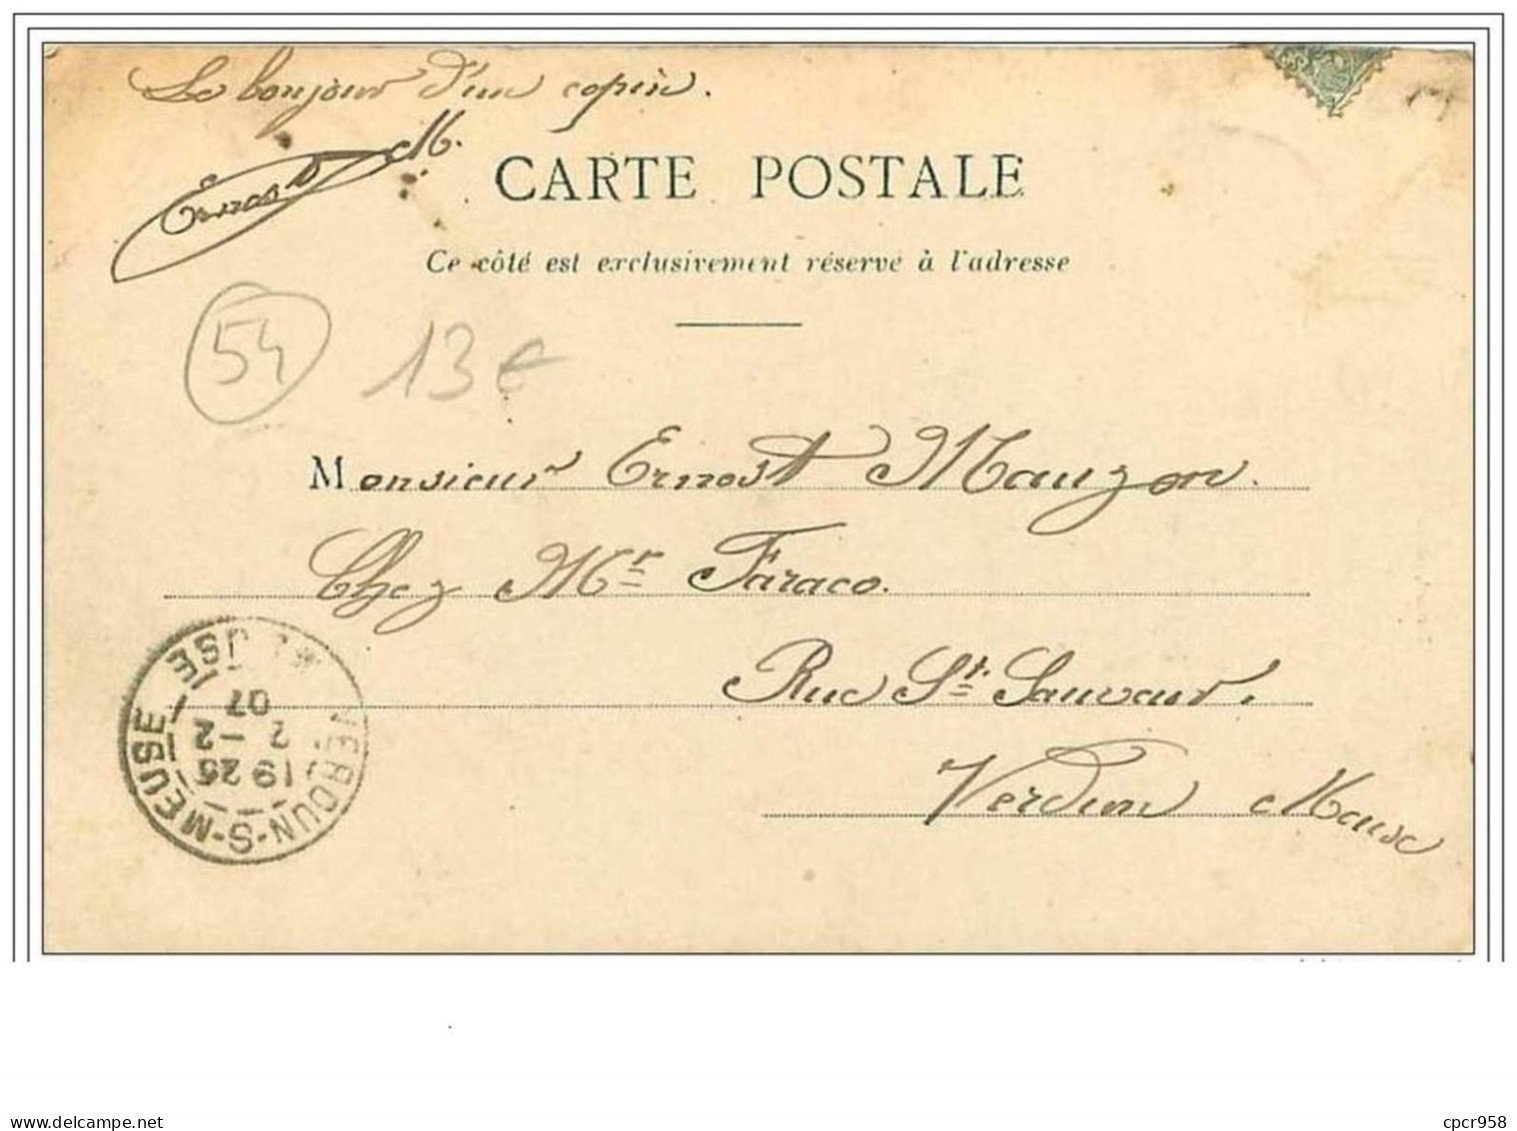 Le bonjour d'un copin.
Ernest M.
CARTE POSTALE
Ce côté est exclusivement réservé à l'adresse
54
13€
Monsieur Ernest Mauzon.
Chez Mr Faraco.
Rue St. Sauveur.
Verdun Meuse
VERDUN-S-MEUSE
19 25
2 -2
07
cpcr958